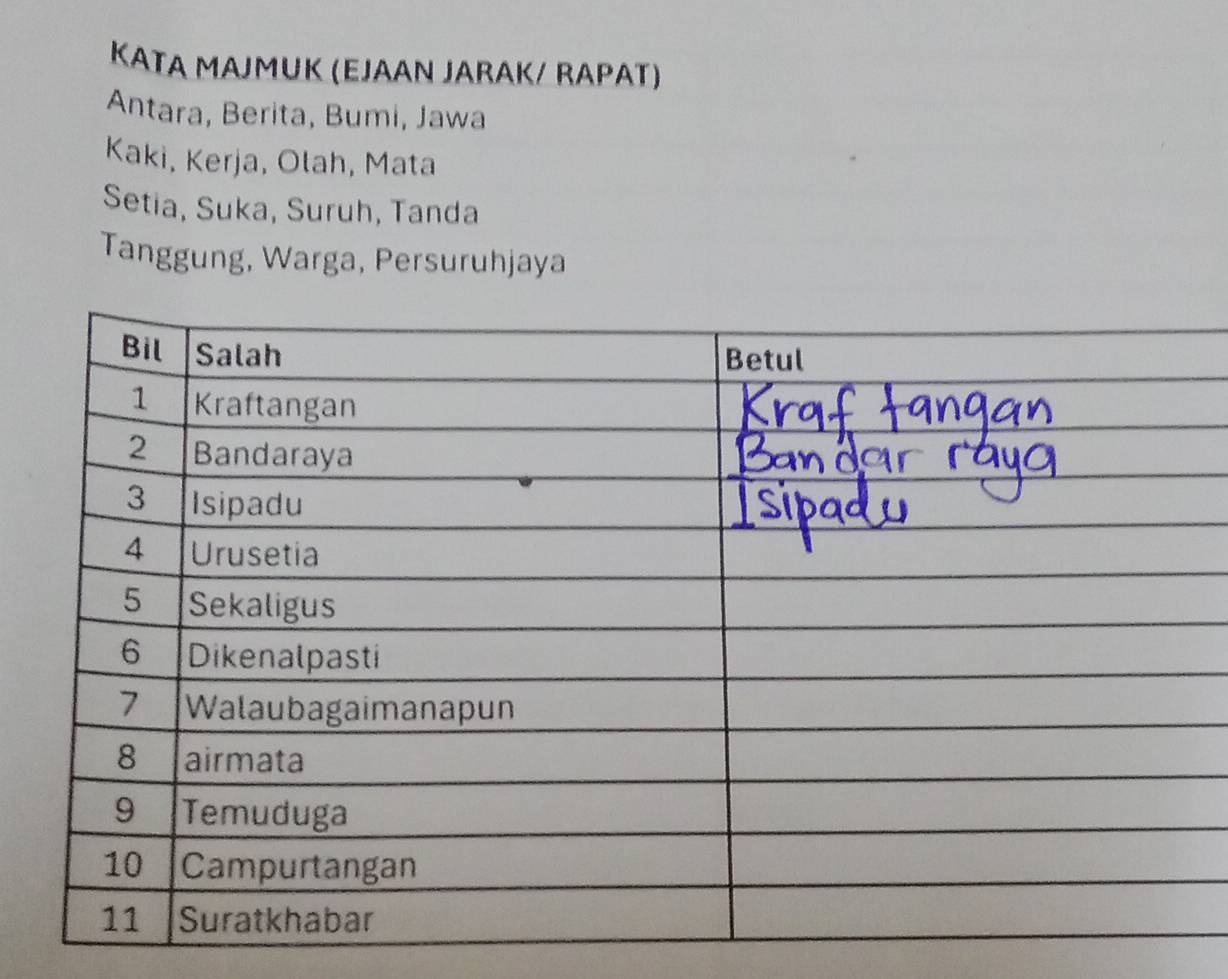 KATA MAJMUK (EJAAN JARAK/ RAPAT)
Antara, Berita, Bumi, Jawa
Kaki, Kerja, Olah, Mata
Setia, Suka, Suruh, Tanda
Tanggung, Warga, Persuruhjaya
Bil Salah Betul
1 Kraftangan Kraf tangan
2 Bandaraya Bandar raya
3 Isipadu Isipadu
4 Urusetia
5 Sekaligus
6 Dikenalpasti
7 Walaubagaimanapun
8 airmata
9 Temuduga
10 Campurtangan
11 Suratkhabar